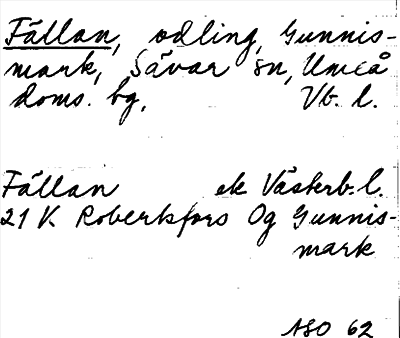 Fällan, odling, Gunnis-
mark, Sävar sn, Umeå
doms. bg, Vb. l.
Fällan ek Västerb. l.
21 K Robertsfors Og Gunnis-
mark
ASO 62